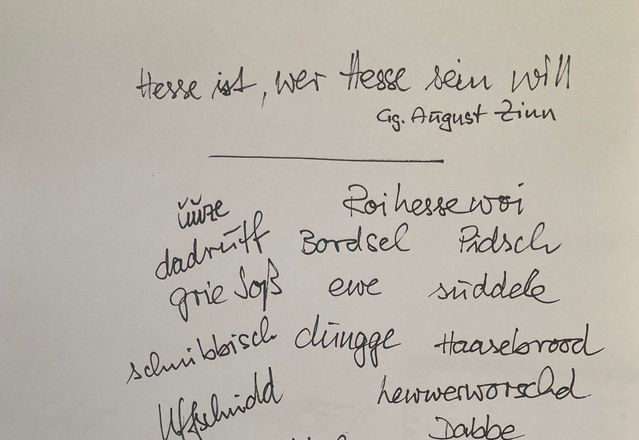 Hesse ist, wer Hesse sein will
Gg. August Zinn
Roihessewoi
dadruff Bordsel Pidsch
grie Soß ewe süddele
schnibbisch düngge Haasebrood
Uffschnidd hewwerworschd
Dabbe